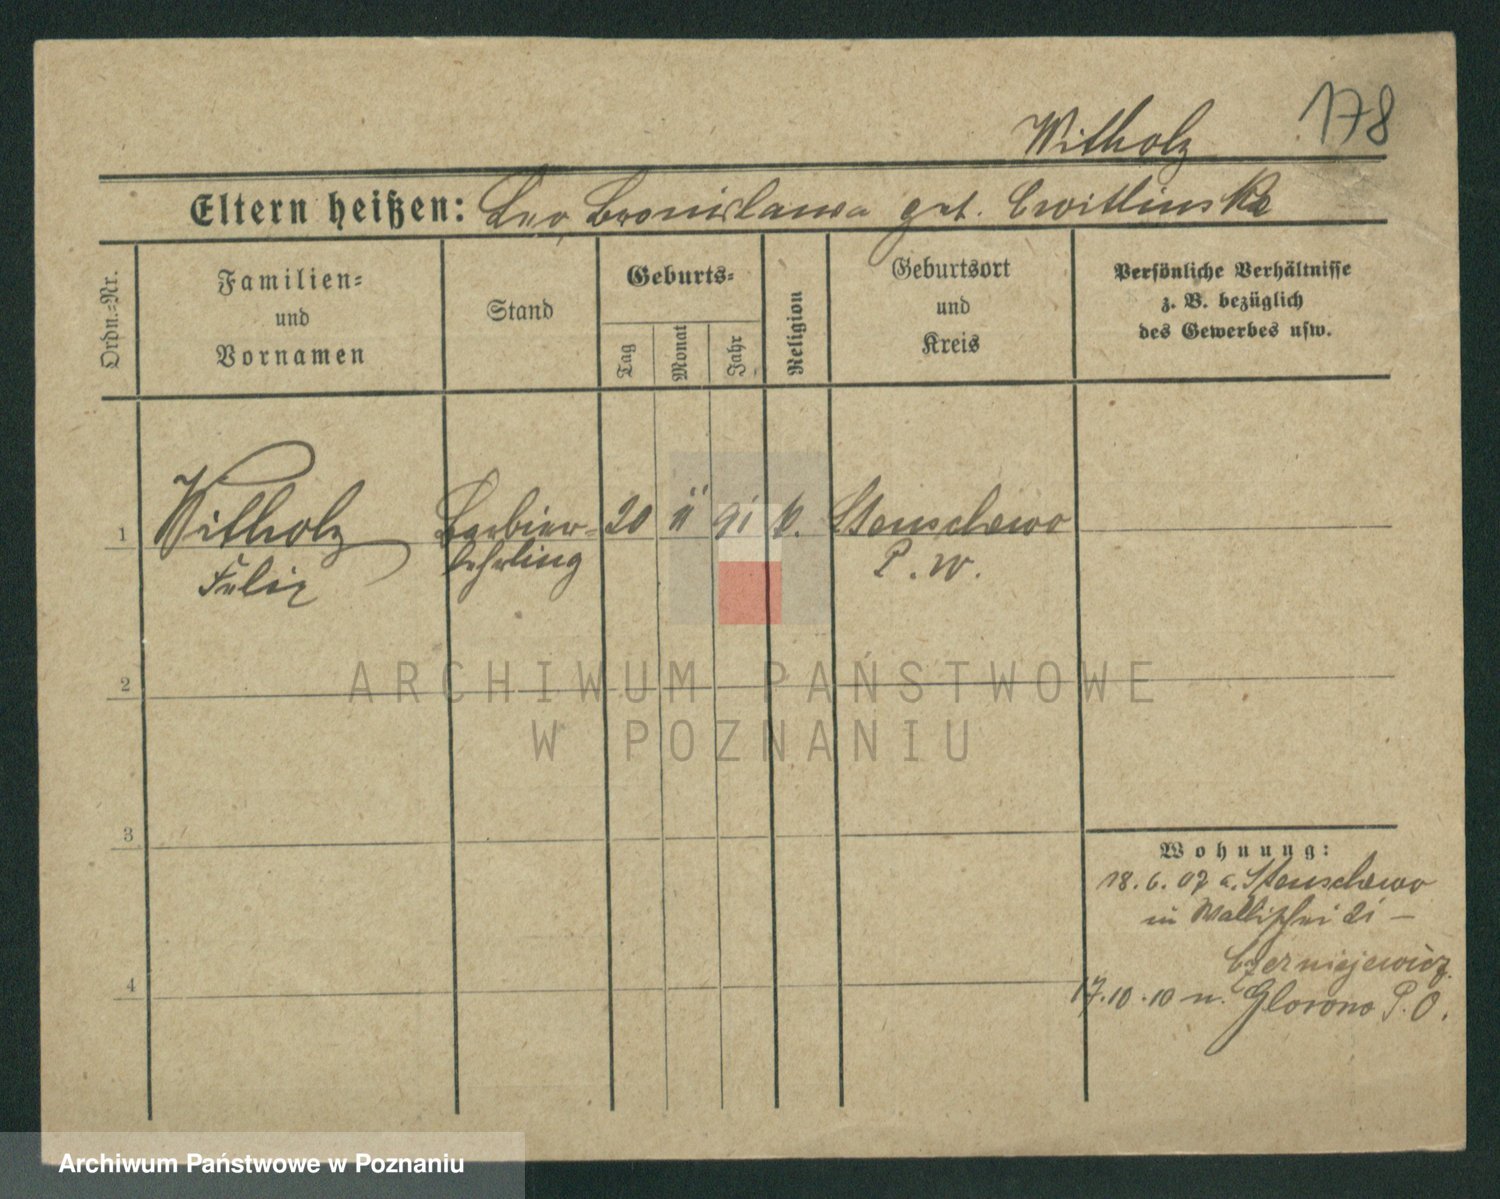 178
Witholz
Eltern heißen: Leo, Bronislawa geb. Cwitlinska
Ordn.-Nr.
Familien-
und
Vornamen
Stand
Geburts-
Tag
Monat
Jahr
Religion
Geburtsort
und
Kreis
Persönliche Verhältnisse
z. B. bezüglich
des Gewerbes usw.
1
Witholz
Felix
Barbier-
lehrling
20
11
91
k.
Stenschewo
P. W.
2
3
4
Wohnung:
18. 6. 07 a. Stenschewo
in Wallischei 21 –
Czerniejewicz
17.10.10 n. Glowno P. O.
ARCHIWUM PAŃSTWOWE
W POZNANIU
Archiwum Państwowe w Poznaniu